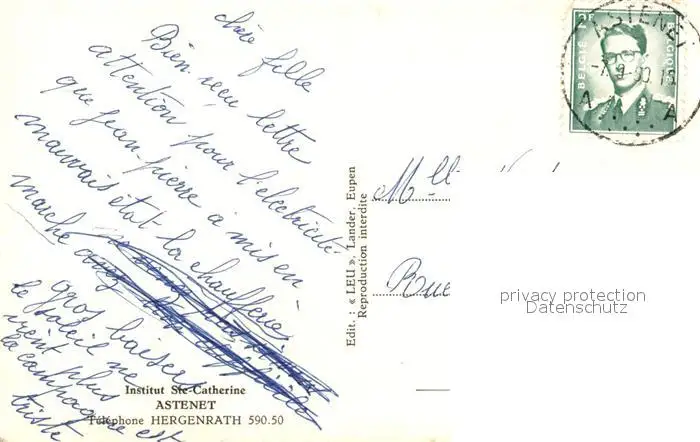 chère fille
Bien reçu lettre
attention pour l'électricité
que Jean-pierre a mis en
mauvais état la chaufferie
marche
gros baisers
le soleil ne
vient plus
la campagne est
triste
Institut Ste-Catherine
ASTENET
Téléphone HERGENRATH 590.50
Edit. : « LEU », Lander, Eupen
Reproduction interdite
BELGIE BELGIQUE
ASTENET
A A
Mlle
Rue
privacy protection
Datenschutz